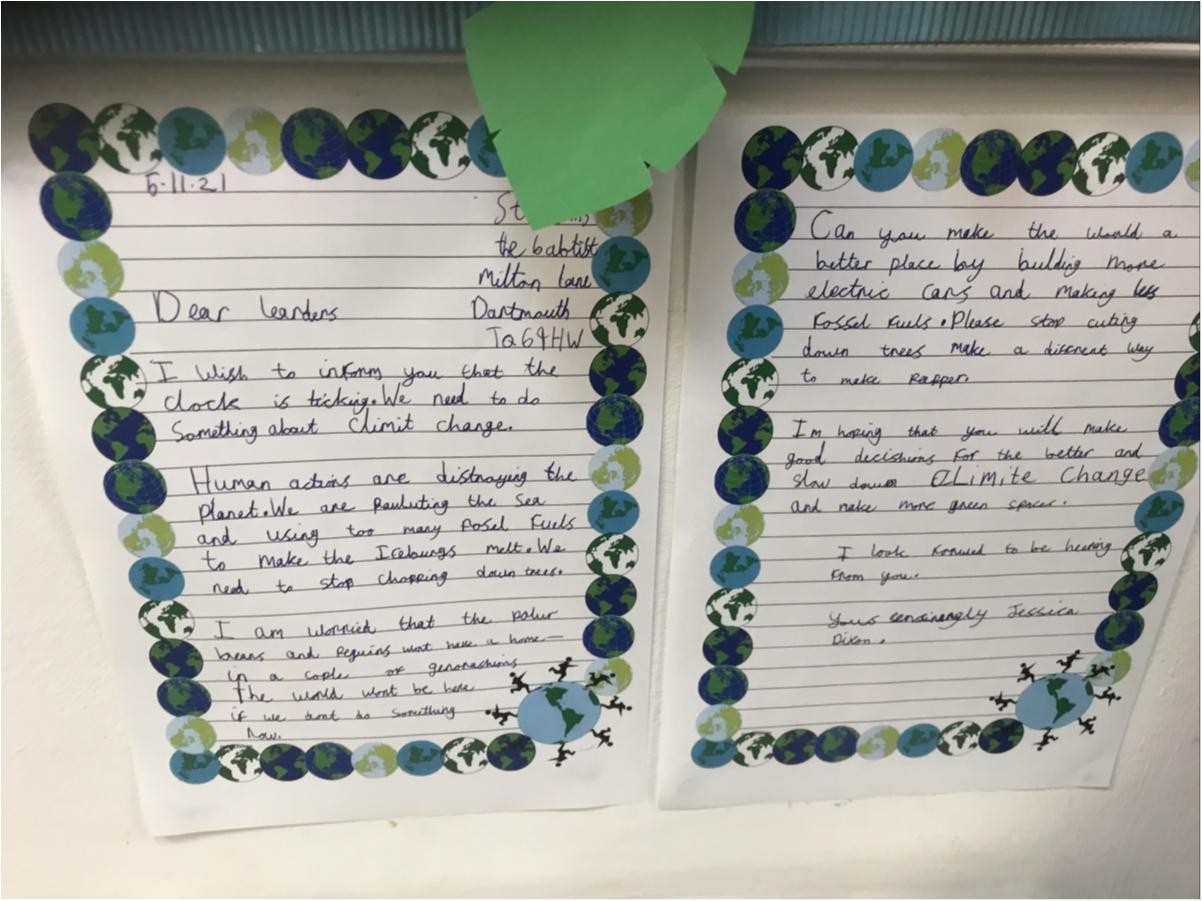 5.11.21
the babtist
Milton lane
Dear leanders
Dartmouth
TQ69HW
I wish to inform you that the
clock is ticking. We need to do
Something about climit change.
Human actions are distnaying the
planet. We are pauluting the Sea
and using too many fosel fuels
to make the Iceburgs melt. We
need to stop chopping down trees.
I am worried that the palur
beans and peguins wont have a home
in a cople of genorashions
The would wont be here
if we dont do something
now.
Can you make the would a
better place by bulding more
electric cars and making less
Fossel fuels. Please stop cuting
down trees make a diffrent way
to make papper.
I'm hoping that you will make
good decishions for the better and
slow down CLimite Change
and make more green spaces.
I look forwud to be hearing
from you.
Jessica
Dixon.